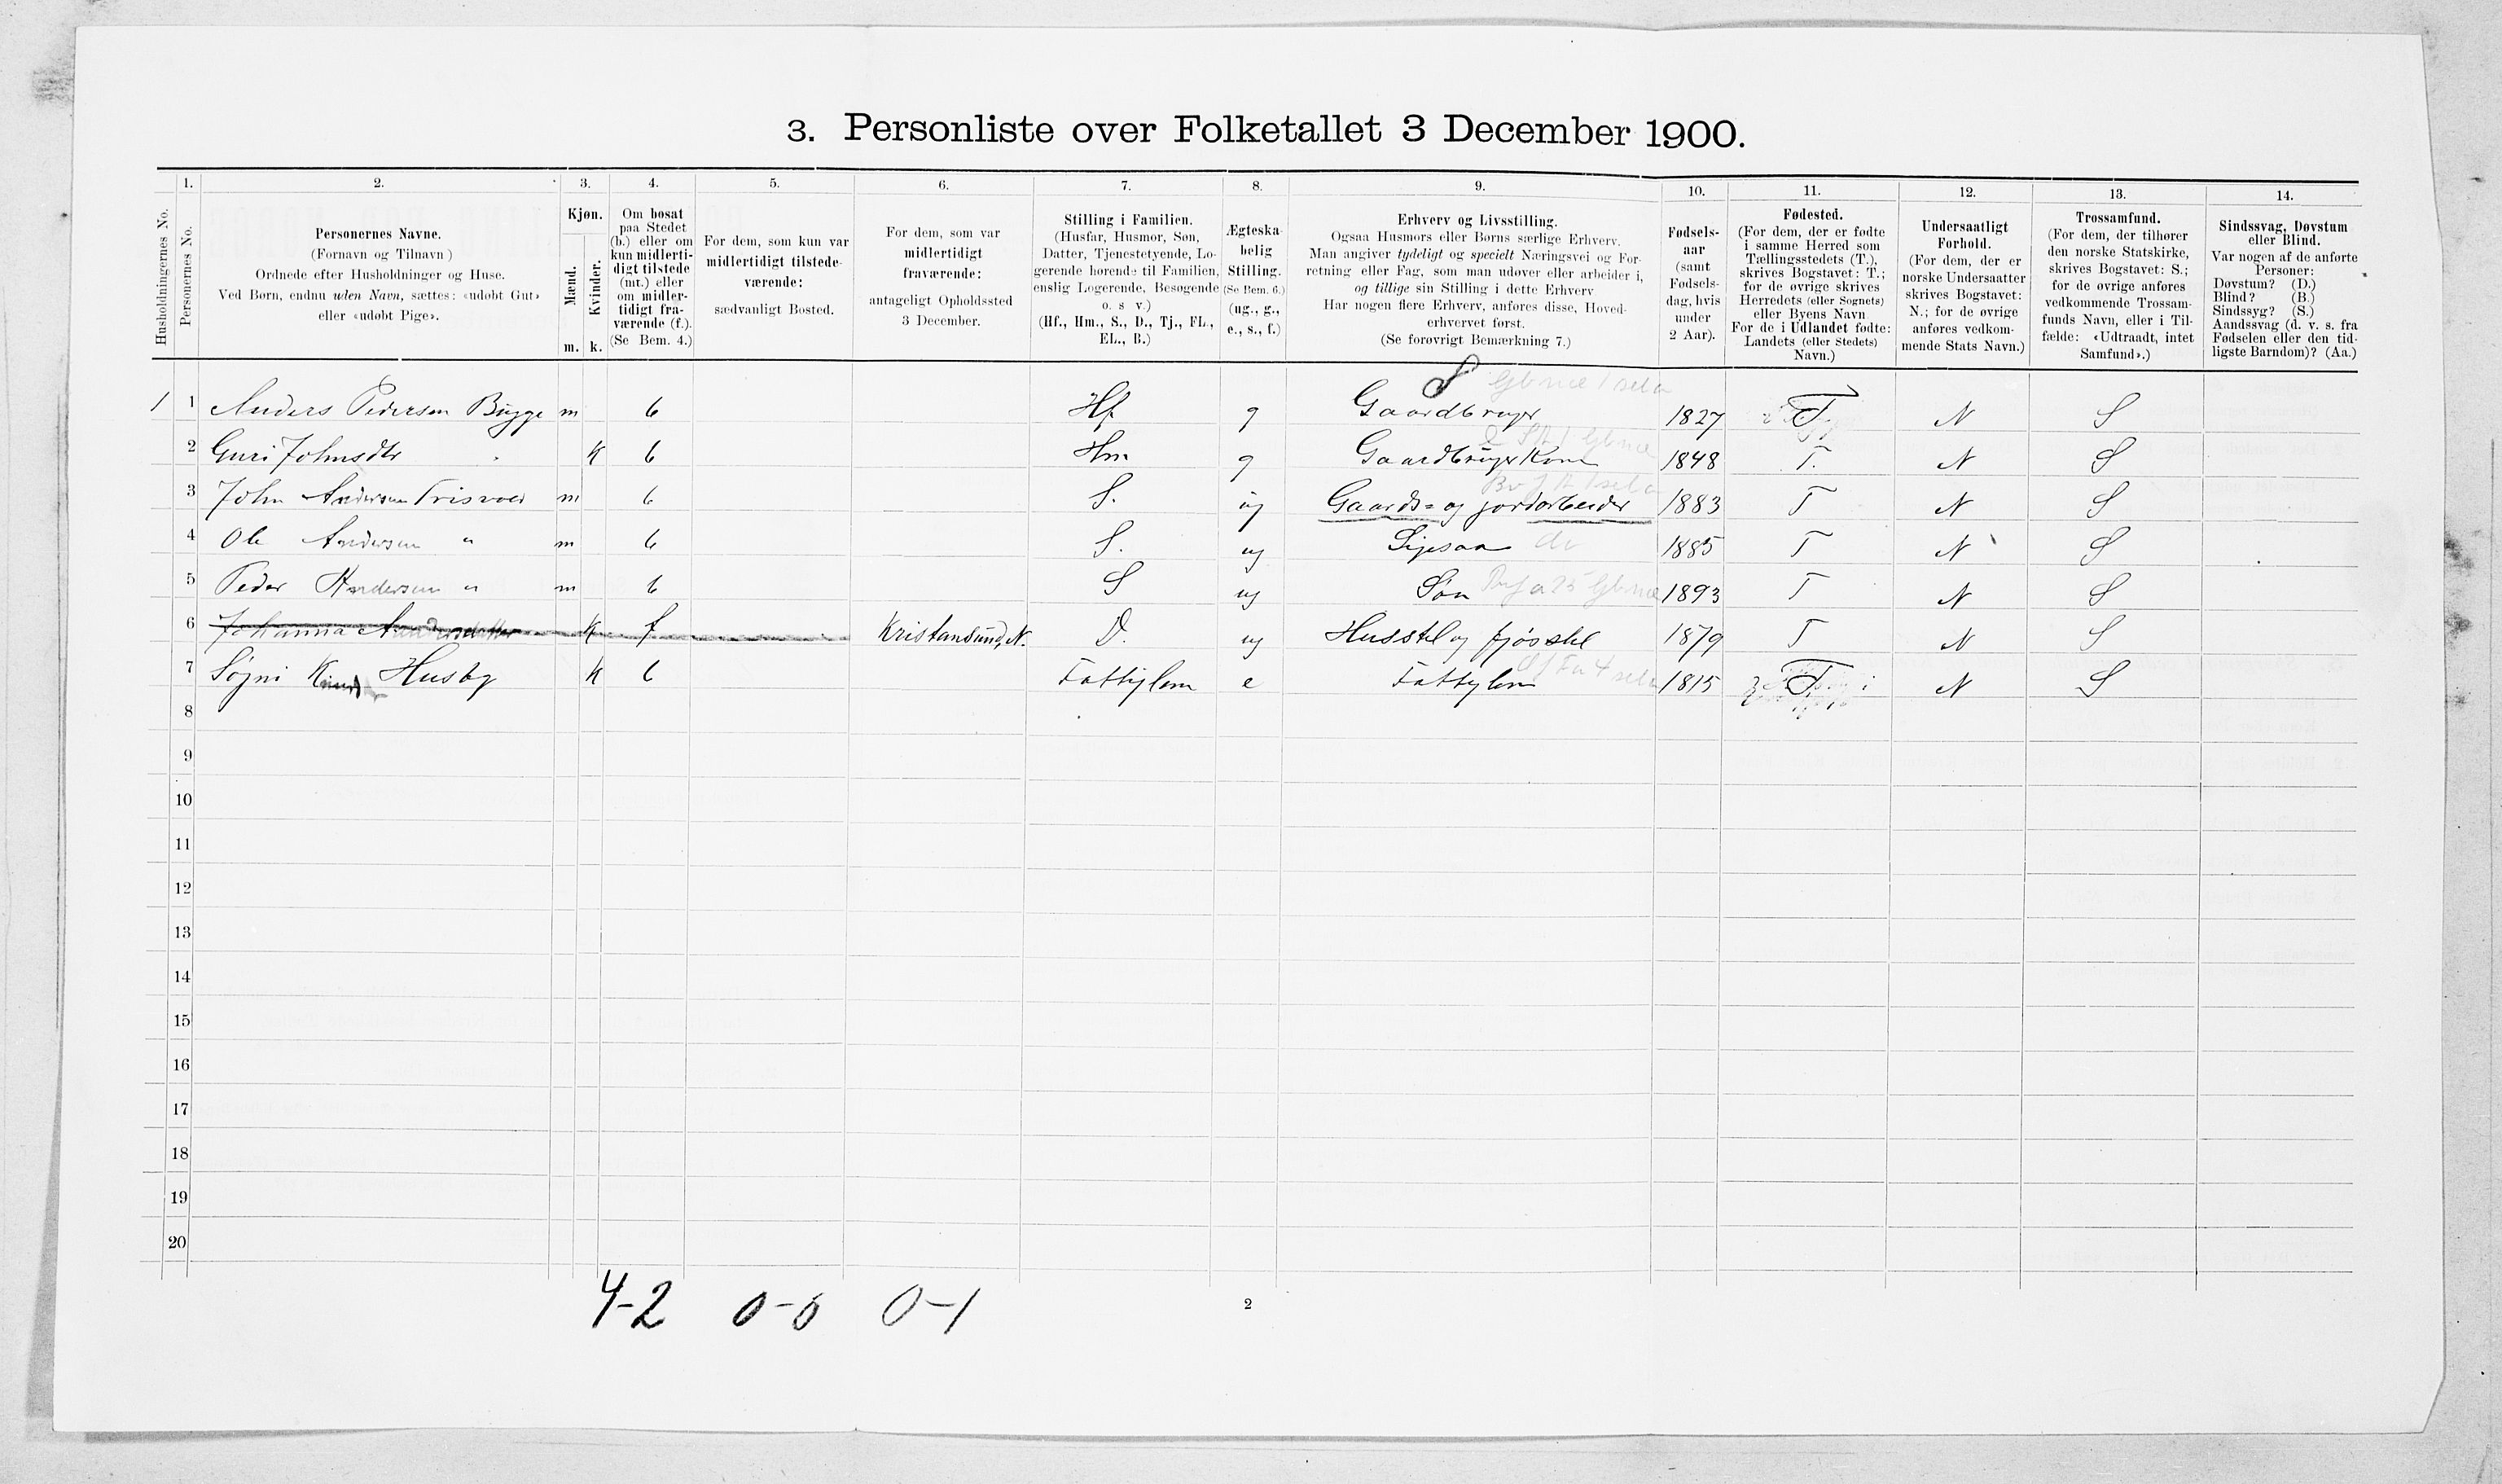 3. Personliste over Folketallet 3 December 1900.
Husholdningernes No.
1.
Personernes No.
2.
Personernes Navne.
(Fornavn og Tilnavn)
Ordnede efter Husholdninger og Huse.
Ved Børn, endnu uden Navn, sættes: «udøbt Gut»
eller «udøbt Pige».
3.
Kjøn.
Mænd.
Kvinder.
m. k.
4.
Om bosat
paa Stedet
(b.) eller om
kun midlerti-
digt tilstede
(mt.) eller
om midler-
tidigt fra-
værende (f.).
(Se Bem. 4.)
5.
For dem, som kun var
midlertidigt tilstede-
værende:
sædvanligt Bosted.
6.
For dem, som var
midlertidigt
fraværende:
antageligt Opholdssted
3 December.
7.
Stilling i Familien.
(Husfar, Husmor, Søn,
Datter, Tjenestetyende, Lo-
gerende hørende til Familien,
enslig Logerende, Besøgende
o. s v.)
(Hf., Hm., S., D., Tj., FL.,
EL., B.)
8.
Ægteska-
belig
Stilling.
(Se Bem. 6.)
(ug., g.,
e., s., f.)
9.
Erhverv og Livsstilling.
Ogsaa Husmors eller Børns særlige Erhverv.
Man angiver tydeligt og specielt Næringsvei og For-
retning eller Fag, som man udøver eller arbeider i,
og tillige sin Stilling i dette Erhverv
Har nogen flere Erhverv, anføres disse, Hoved-
erhvervet først.
(Se forøvrigt Bemærkning 7.)
10.
Fødsels-
aar
(samt
Fødsels-
dag, hvis
under
2 Aar).
11.
Fødested.
(For dem, der er fødte
i samme Herred som
Tællingsstedets (T.),
skrives Bogstavet: T.;
for de øvrige skrives
Herredets (eller Sognets)
eller Byens Navn
For de i Udlandet fødte:
Landets (eller Stedets)
Navn.)
12.
Undersaatligt
Forhold.
(For dem, der er
norske Undersaatter
skrives Bogstavet:
N.; for de øvrige
anføres vedkom-
mende Stats Navn.)
13.
Trossamfund.
(For dem, der tilhører
den norske Statskirke,
skrives Bogstavet: S.;
for de øvrige anføres
vedkommende Trossam-
funds Navn, eller i Til-
fælde: «Udtraadt, intet
Samfund».)
14.
Sindssvag, Døvstum
eller Blind.
Var nogen af de anførte
Personer:
Døvstum? (D.)
Blind? (B.)
Sindssyg? (S.)
Aandssvag (d. v. s. fra
Fødselen eller den tid-
ligste Barndom)? (Aa.)
1 1 Anders Pedersen Bugge m b Hf g Gaardbruger 1827 T. N S
2 Guri Johnsdtr " k b Hm g Gaardbruger Kone 1848 T. N S
3 John Andersen m b S. ug Gaards- og jordarbeider 1883 T N S
4 Ole Andersen " m b S. ug 1885 T N S
5 Peder Andersen " m b S ug Søn 1893 T N S
6 Johanna Andersdatter k f Kristiansund, N. D. ug Husstel og fjøsstel 1879 T N S
7 Husby k b Fattiglem e Fattiglem 1815 T N S
8
9
10
11
12
13
14
15
16
17
18
19
20
4-2 0-0 0-1
2